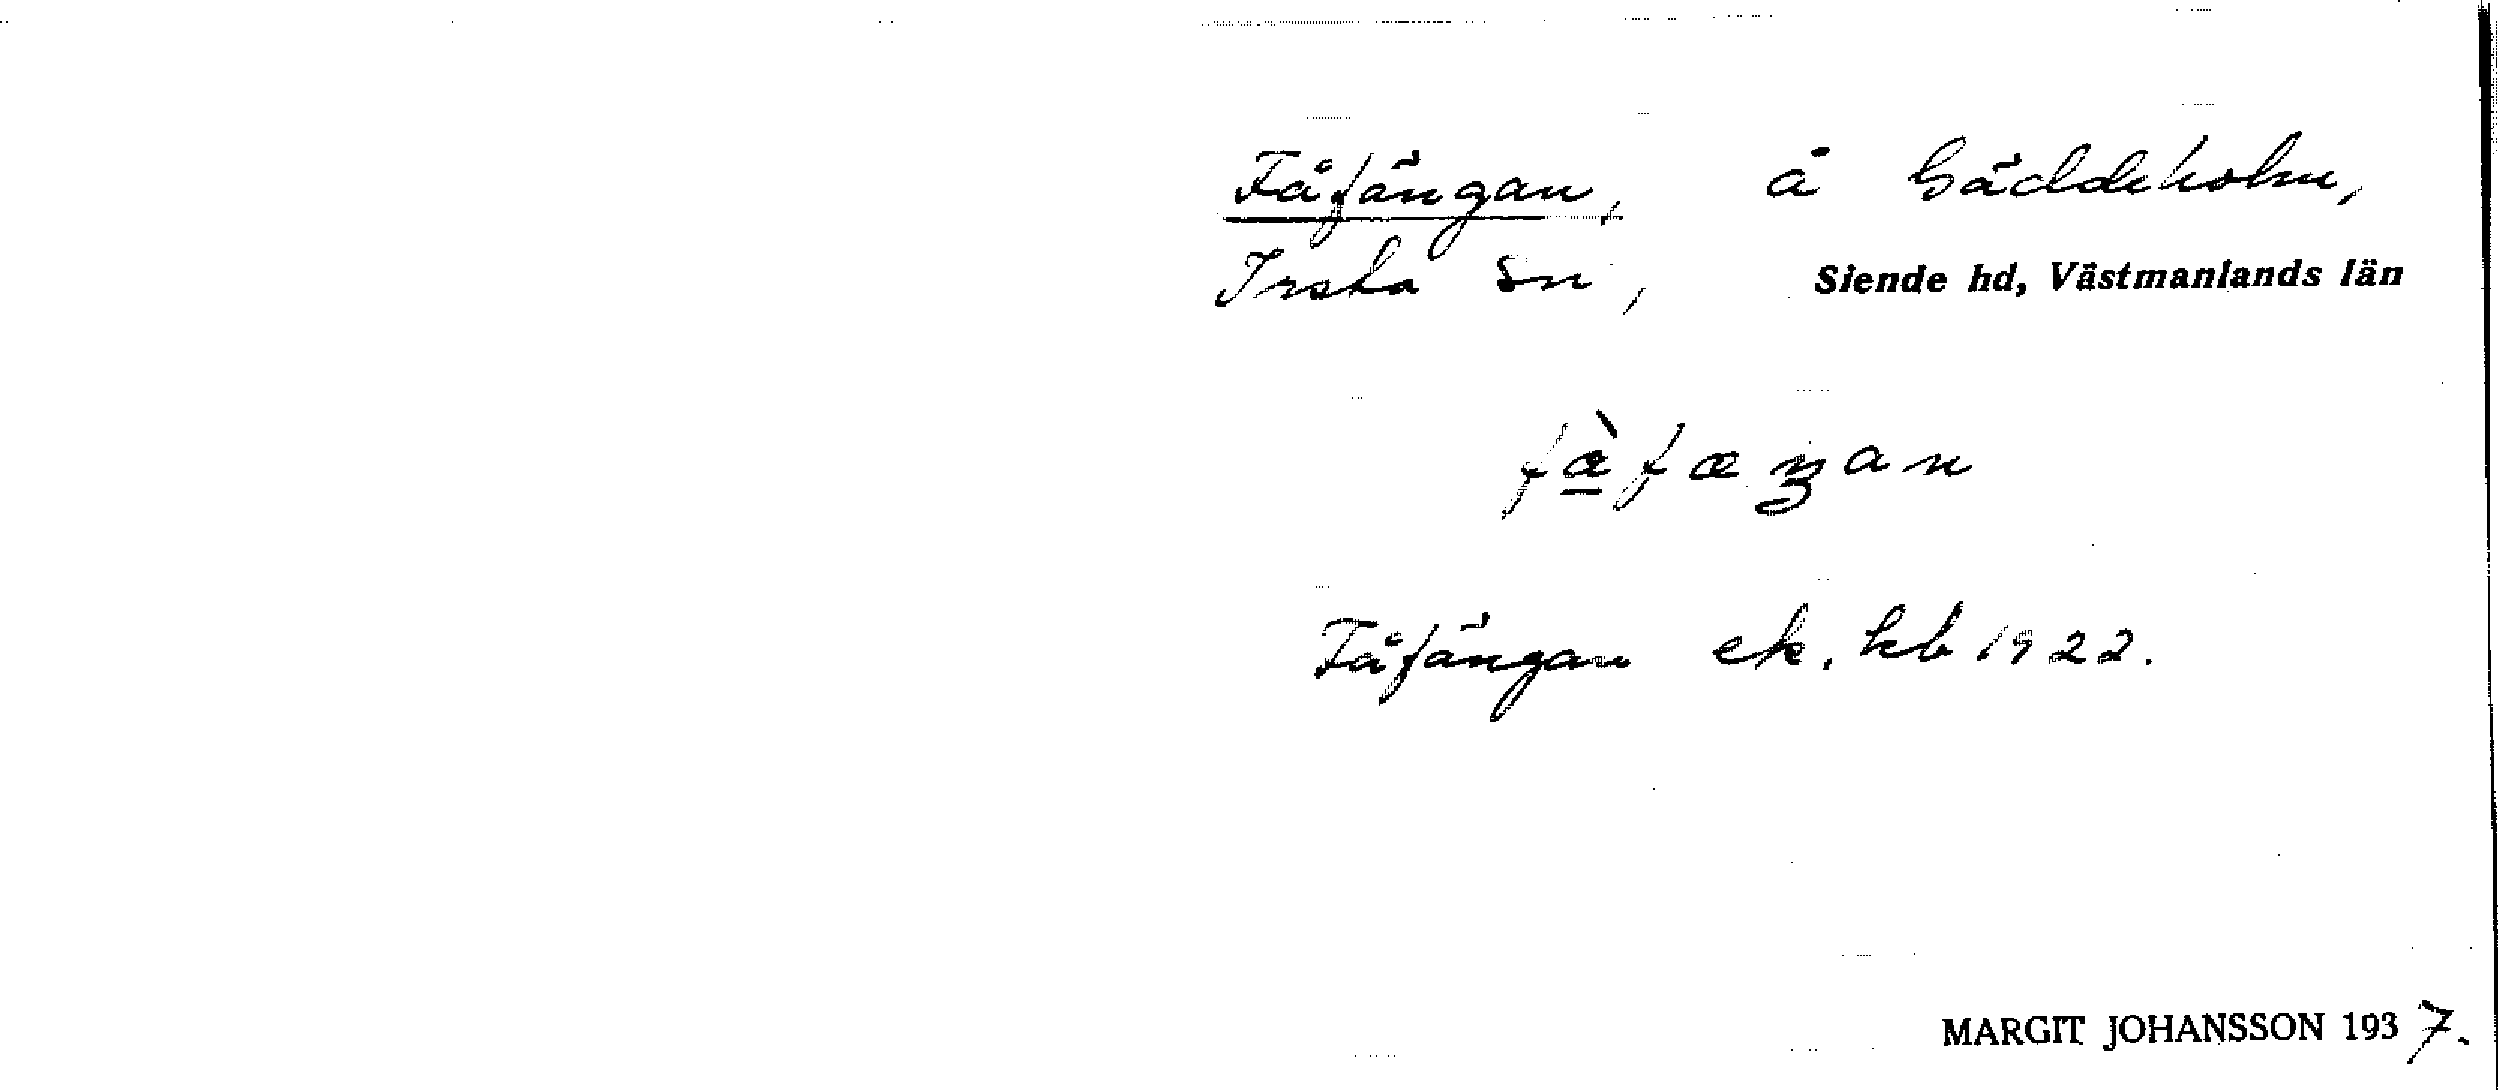 Fåfängan, å Gäddeholm,
Irsta sn, Siende hd, Västmanlands län
fàfæŋan
Fåfängan ek. kb 1922.
MARGIT JOHANSSON 1937.